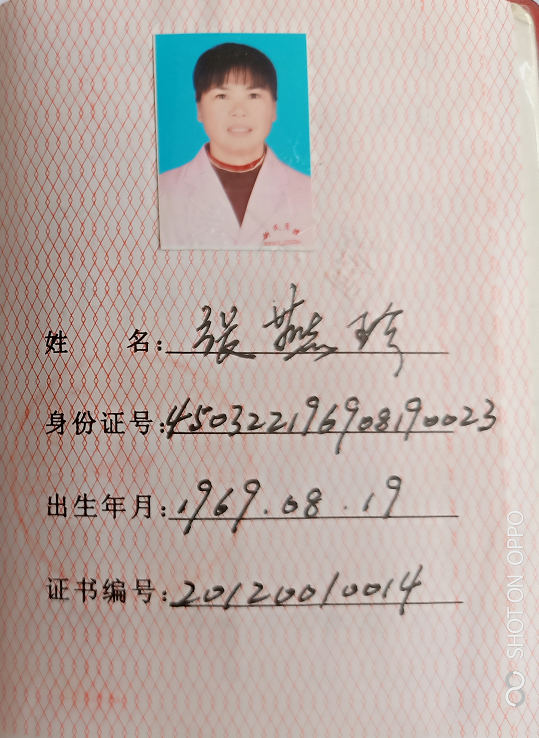 姓 名：张燕珍
身份证号：450322196908190023
出生年月：1969.08.19
证书编号：20120010014
SHOT ON OPPO